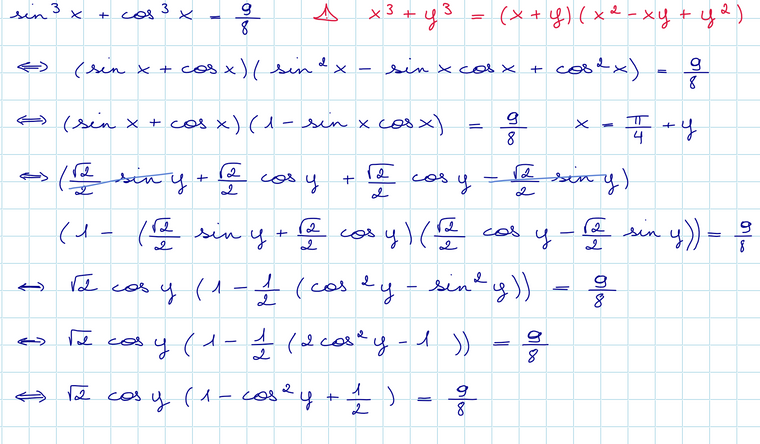 sin³x + cos³x = 9/8 ⚠ x³ + y³ = (x + y)(x² - xy + y²)
⟺ (sin x + cos x)(sin²x - sin x cos x + cos²x) = 9/8
⟺ (sin x + cos x)(1 - sin x cos x) = 9/8 x = π/4 + y
⟺ (√2/2 sin y + √2/2 cos y + √2/2 cos y - √2/2 sin y)
(1 - (√2/2 sin y + √2/2 cos y)(√2/2 cos y - √2/2 sin y)) = 9/8
⟺ √2 cos y (1 - 1/2 (cos²y - sin²y)) = 9/8
⟺ √2 cos y (1 - 1/2 (2cos²y - 1)) = 9/8
⟺ √2 cos y (1 - cos²y + 1/2) = 9/8